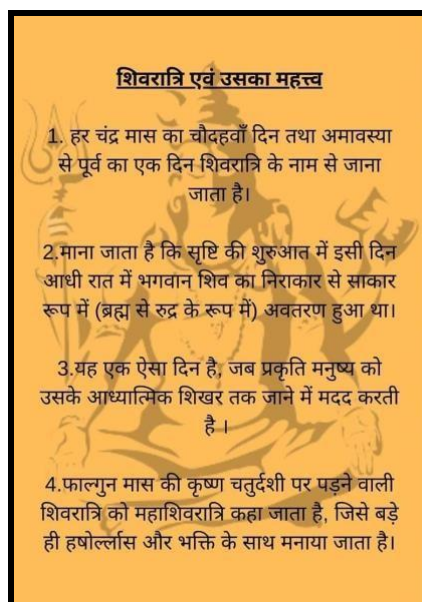 शिवरात्रि एवं उसका महत्त्व
1. हर चंद्र मास का चौदहवाँ दिन तथा अमावस्या
से पूर्व का एक दिन शिवरात्रि के नाम से जाना
जाता है।
2.माना जाता है कि सृष्टि की शुरुआत में इसी दिन
आधी रात में भगवान शिव का निराकार से साकार
रूप में (ब्रह्म से रुद्र के रूप में) अवतरण हुआ था।
3.यह एक ऐसा दिन है, जब प्रकृति मनुष्य को
उसके आध्यात्मिक शिखर तक जाने में मदद करती
है ।
4.फाल्गुन मास की कृष्ण चतुर्दशी पर पड़ने वाली
शिवरात्रि को महाशिवरात्रि कहा जाता है, जिसे बड़े
ही हषोर्ल्लास और भक्ति के साथ मनाया जाता है।